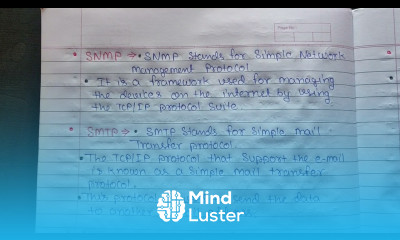 SNMP → • SNMP stands for Simple Network
Management Protocol
• It is a framework used for managing
the devices on the internet by using
the TCP/IP protocol suite.
SMTP → • SMTP stands for simple mail
Transfer protocol
• The TCP/IP protocol that support the e-mail
is known as a simple mail transfer
protocol.
• This protocol the data
to another
Mind
Luster